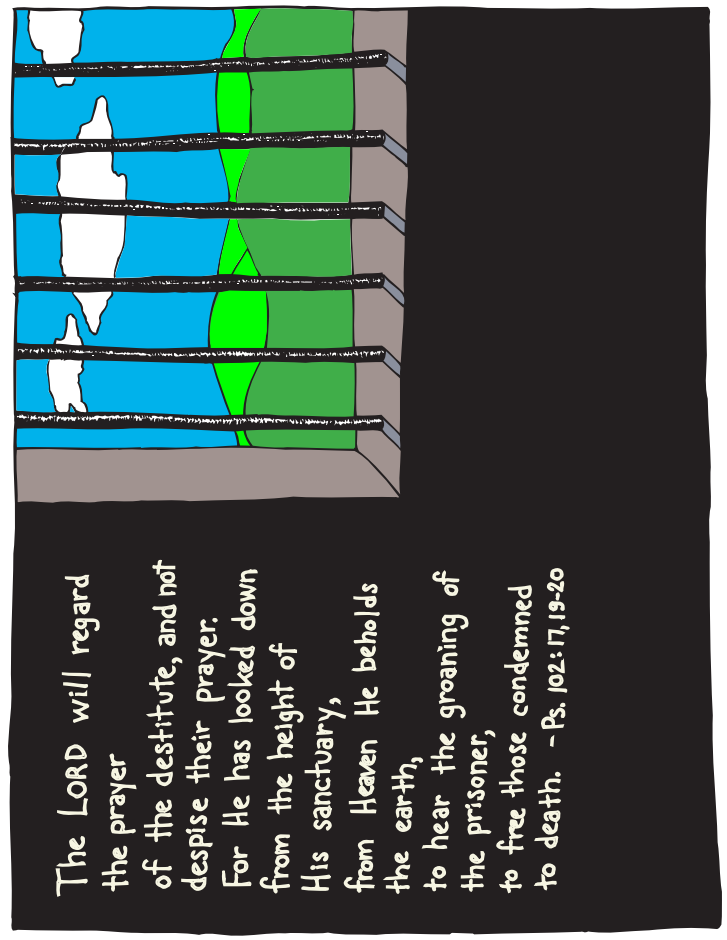 The LORD will regard
the prayer
of the destitute, and not
despise their prayer.
For He has looked down
from the height of
His sanctuary,
from Heaven He beholds
the earth,
to hear the groaning of
the prisoner,
to free those condemned
to death. - Ps. 102:17, 19-20